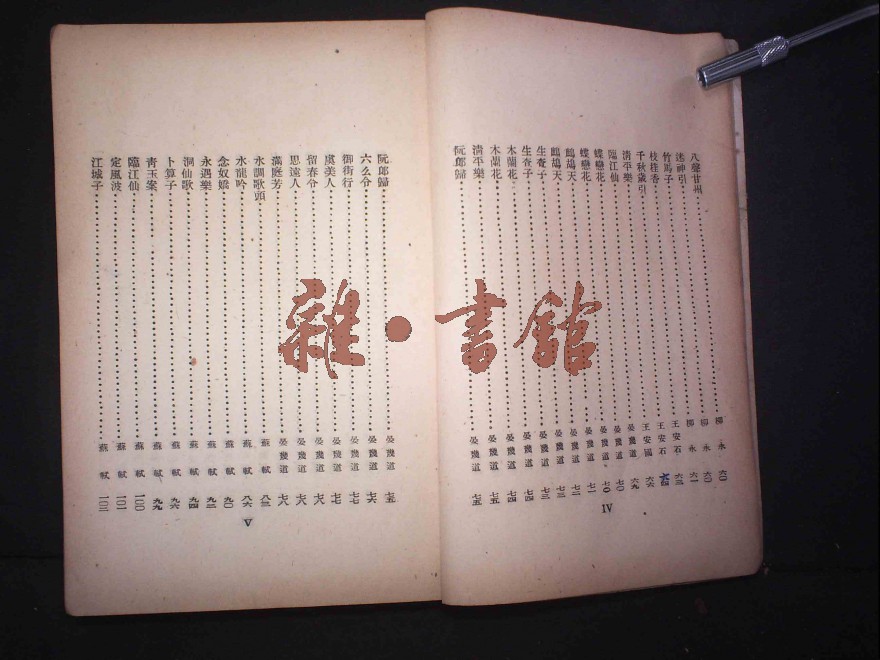 八聲甘州……柳永 六〇
迷神引……柳永 六〇
竹馬子……柳永 六一
枝桂香……王安石 六三
千秋歲引……王安石 六四
清平樂……王安國 六六
臨江仙……晏幾道 六九
蝶戀花……晏幾道 七〇
蝶戀花……晏幾道 七〇
鷓鴣天……晏幾道 七一
鷓鴣天……晏幾道 七二
生查子……晏幾道 七三
生查子……晏幾道 七三
木蘭花……晏幾道 七四
木蘭花……晏幾道 七四
清平樂……晏幾道 七五
阮郎歸……晏幾道 七五
IV
阮郎歸……晏幾道 七五
六么令……晏幾道 七六
御街行……晏幾道 七七
虞美人……晏幾道 七七
留春令……晏幾道 七八
思遠人……晏幾道 七八
滿庭芳……晏幾道 七八
水調歌頭……蘇軾 八三
水龍吟……蘇軾 八六
念奴嬌……蘇軾 九〇
永遇樂……蘇軾 九三
洞仙歌……蘇軾 九四
卜算子……蘇軾 九六
青玉案……蘇軾 九九
臨江仙……蘇軾 一〇〇
定風波……蘇軾 一〇一
江城子……蘇軾 一〇三
V
雜·書館